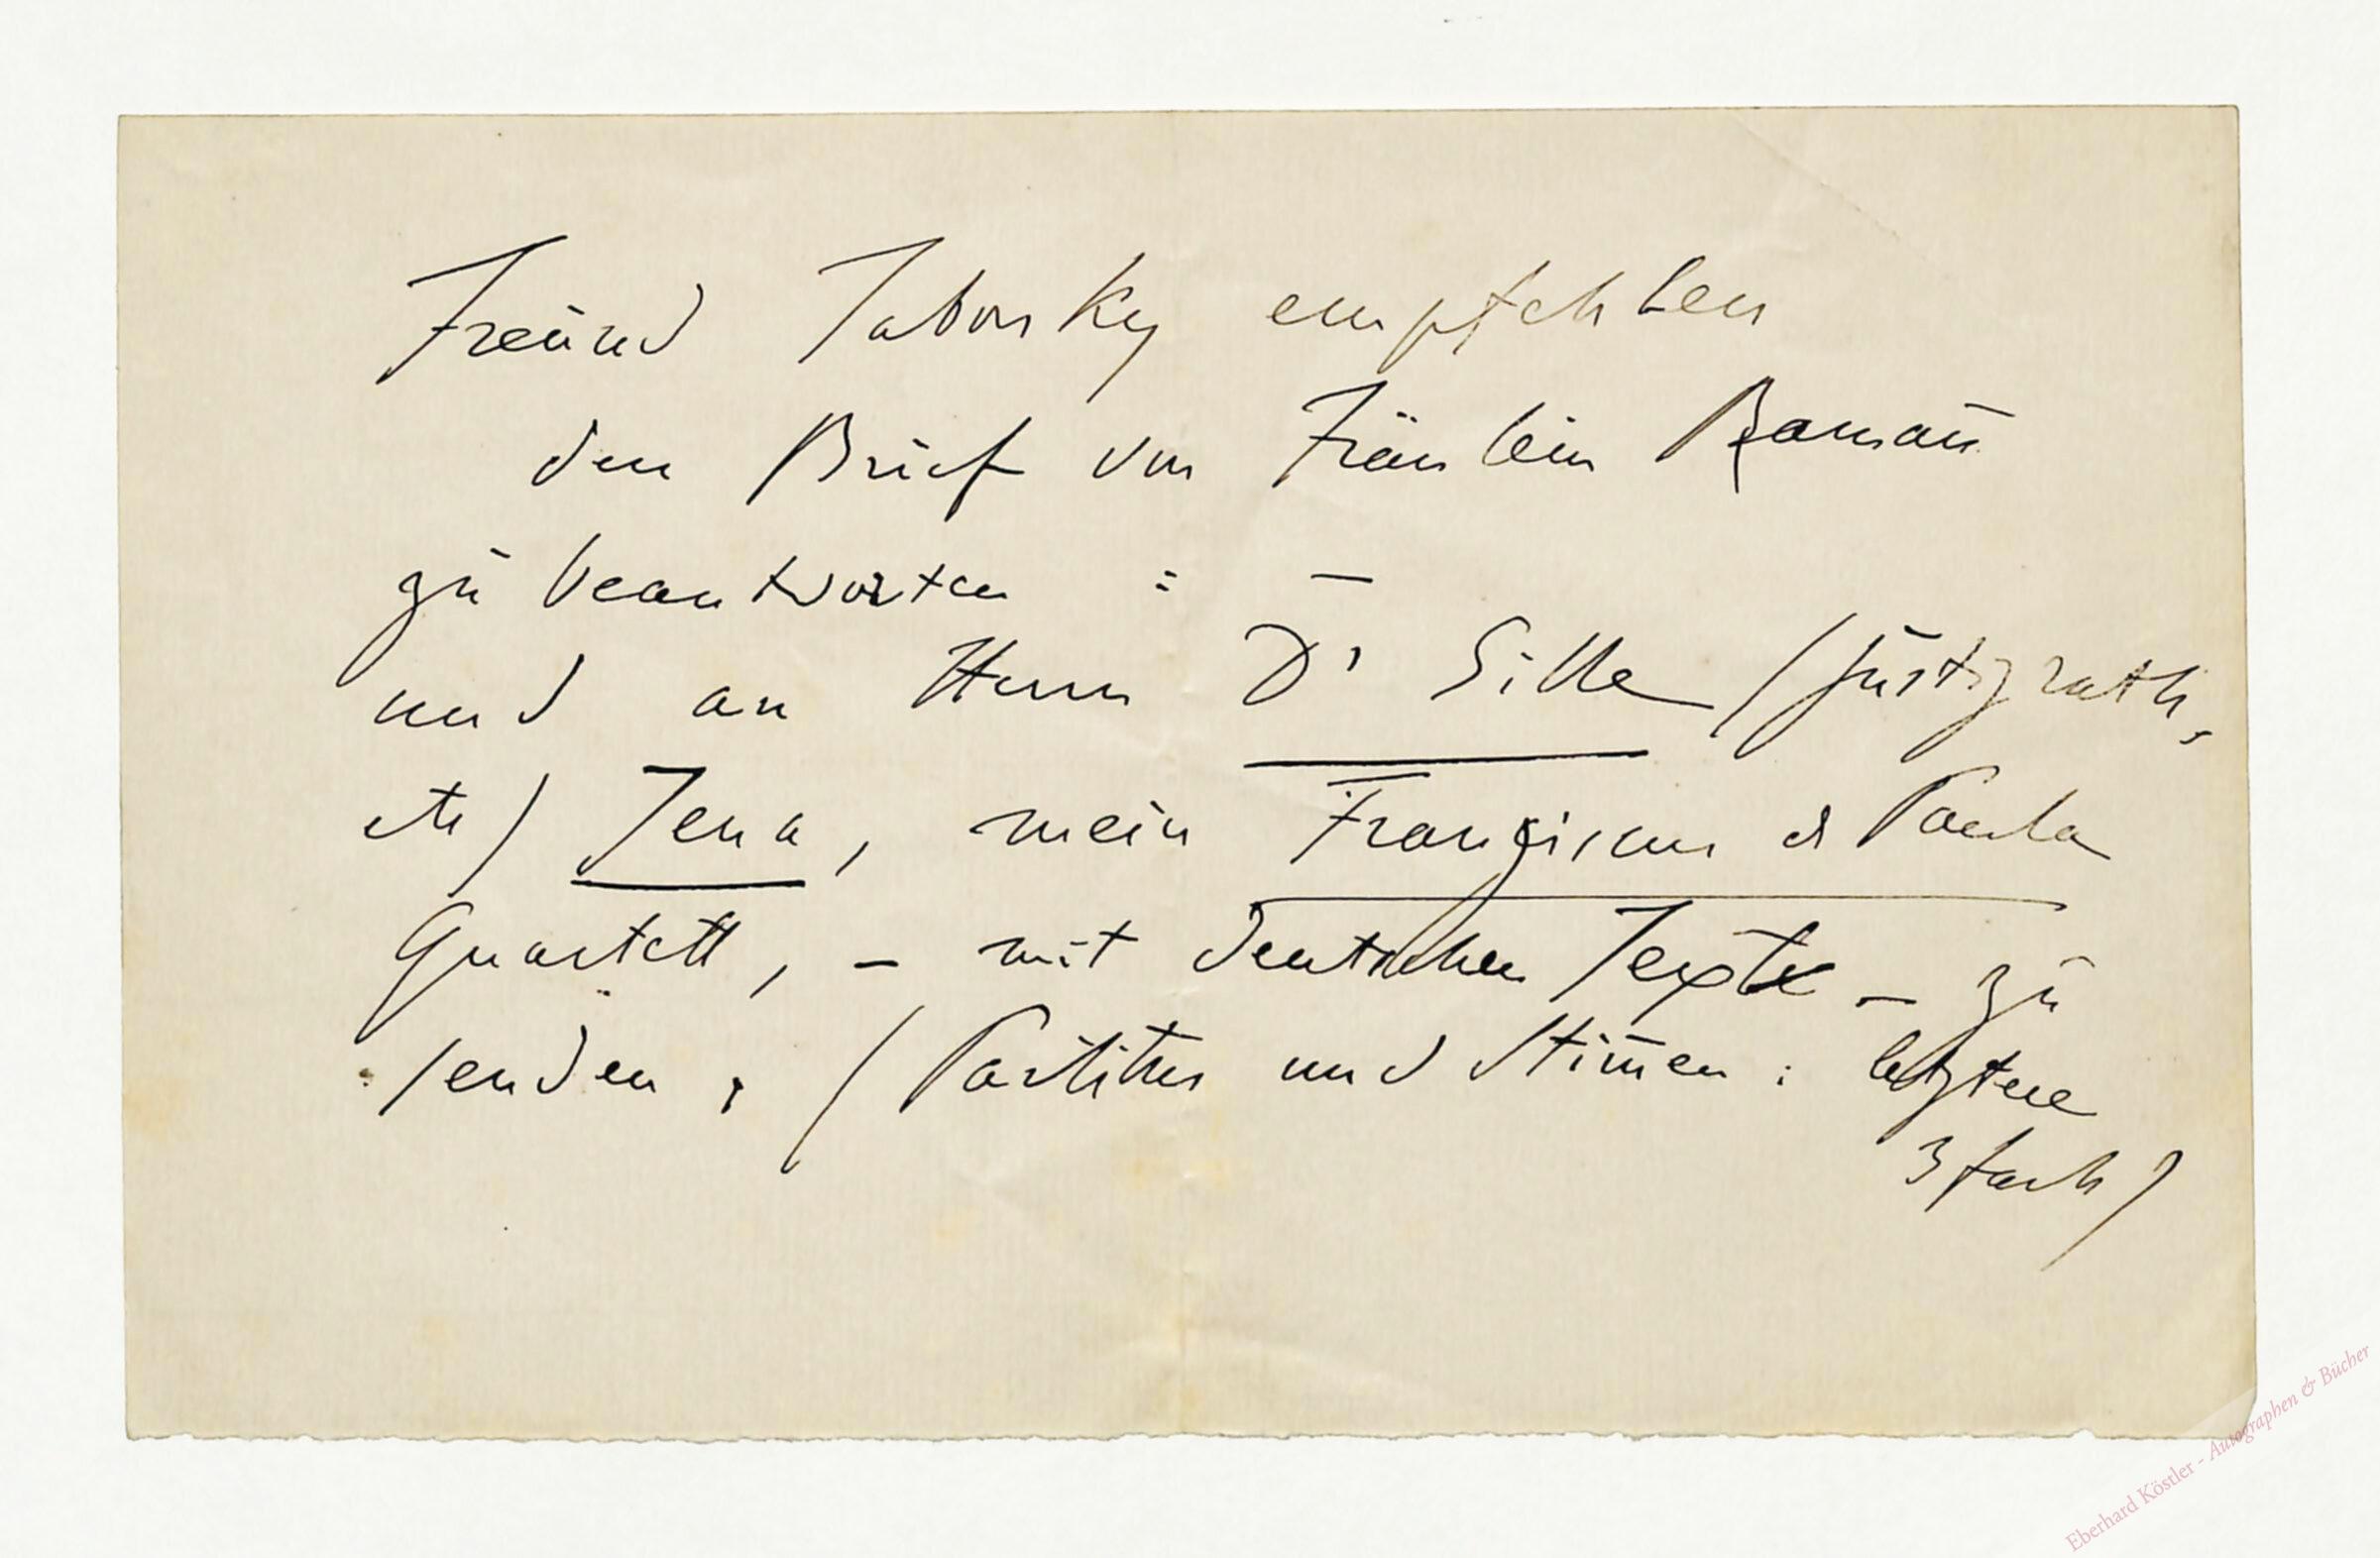 Freund Taborsky empfehlen
den Brief von Fräulein Ramañ
zu beantworten : —
und an Herrn Dr Gille (Justizrath,
etc) Jena, mein Franziscus de Paula
Quartett, – mit deutschen Texte – zu
senden, (Partitur und Stim̄en : letztere
3fach)
Eberhard Köstler - Autographen & Bücher